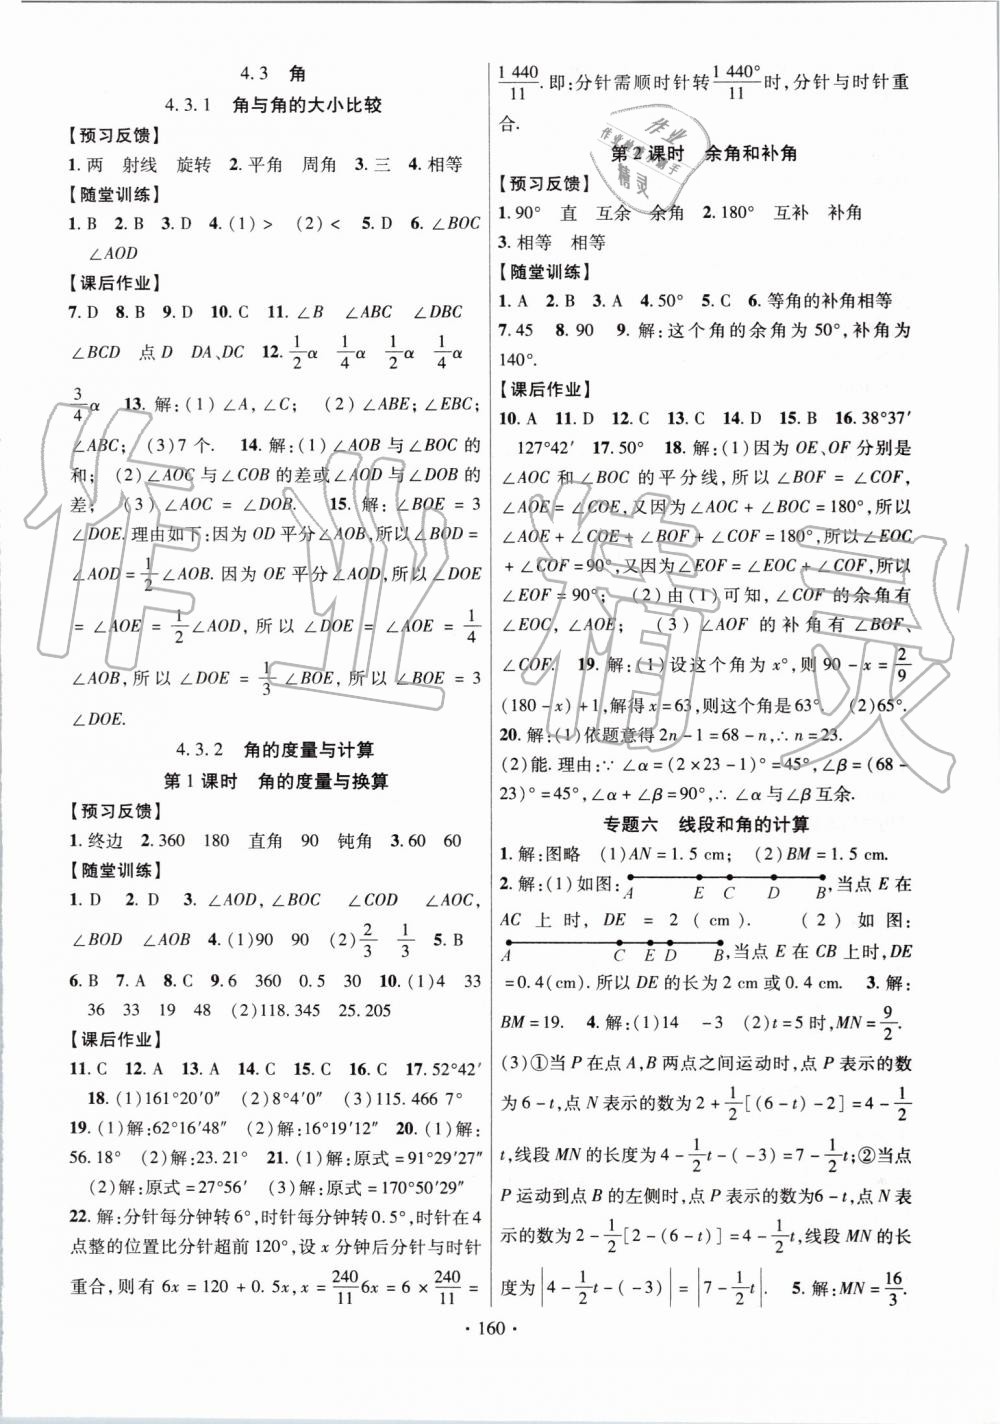 4.3 角
4.3.1 角与角的大小比较
【预习反馈】
1.两 射线 旋转 2.平角 周角 3.三 4.相等
【随堂训练】
1.B 2.B 3.D 4.(1)> (2)< 5.D 6.∠BOC
∠AOD
【课后作业】
7.D 8.B 9.D 10.C 11.∠B ∠ABC ∠DBC
∠BCD 点D DA、DC 12.1/2α 1/4α 1/2α 1/4α
3/4α 13.解:(1)∠A,∠C; (2)∠ABE;∠EBC;
∠ABC; (3)7个. 14.解:(1)∠AOB与∠BOC的
和; (2)∠AOC与∠COB的差或∠AOD与∠DOB的
差; (3)∠AOC=∠DOB. 15.解:∠BOE=3
∠DOE.理由如下:因为OD平分∠AOB,所以∠BOD=
∠AOD=1/2∠AOB.因为OE平分∠AOD,所以∠DOE
=∠AOE=1/2∠AOD,所以∠DOE=∠AOE=1/4
∠AOB,所以∠DOE=1/3∠BOE,所以∠BOE=3
∠DOE.
4.3.2 角的度量与计算
第1课时 角的度量与换算
【预习反馈】
1.终边 2.360 180 直角 90 钝角 3.60 60
【随堂训练】
1.D 2.D 3.∠AOD,∠BOC ∠COD ∠AOC,
∠BOD ∠AOB 4.(1)90 90 (2)2/3 1/3 5.B
6.B 7.A 8.C 9.6 360 0.5 30 10.(1)4 33
36 33 19 48 (2)118.345 25.205
【课后作业】
11.C 12.A 13.A 14.C 15.C 16.C 17.52°42′
18.(1)161°20′0″ (2)8°4′0″ (3)115.466 7°
19.(1)解:62°16′48″ (2)解:16°19′12″ 20.(1)解:
56.18° (2)解:23.21° 21.(1)解:原式=91°29′27″
(2)解:原式=27°56′ (3)解:原式=170°50′29″
22.解:分针每分钟转6°,时针每分钟转0.5°,时针在4
点整的位置比分针超前120°,设x分钟后分针与时针
重合,则有6x=120+0.5x,x=240/11 6x=6×240/11=
1 440/11.即:分针需顺时针转1 440°/11时,分针与时针重
合.
第2课时 余角和补角
【预习反馈】
1.90° 直 互余 余角 2.180° 互补 补角
3.相等 相等
【随堂训练】
1.A 2.B 3.A 4.50° 5.C 6.等角的补角相等
7.45 8.90 9.解:这个角的余角为50°,补角为
140°.
【课后作业】
10.A 11.D 12.C 13.C 14.D 15.B 16.38°37′
127°42′ 17.50° 18.解:(1)因为OE、OF分别是
∠AOC和∠BOC的平分线,所以∠BOF=∠COF,
∠AOE=∠COE,又因为∠AOC+∠BOC=180°,所以
∠AOE+∠COE+∠BOF+∠COF=180°,所以∠EOC
+∠COF=90°,又因为∠EOF=∠EOC+∠COF,所以
∠EOF=90°; (2)由(1)可知,∠COF的余角有
∠EOC,∠AOE; (3)∠AOF的补角有∠BOF、
∠COF. 19.解:(1)设这个角为x°,则90-x=2/9
(180-x)+1,解得x=63,则这个角是63°. (2)65°.
20.解:(1)依题意得2n-1=68-n,∴n=23.
(2)能.理由:∵∠α=(2×23-1)°=45°,∠β=(68-
23)°=45°,∠α+∠β=90°,∴∠α与∠β互余.
专题六 线段和角的计算
1.解:图略 (1)AN=1.5 cm; (2)BM=1.5 cm.
2.解:(1)如图: A E C D B,当点E在
AC上时,DE=2(cm). (2)如图:
A C E D B,当点E在CB上时,DE
=0.4(cm).所以DE的长为2 cm或0.4 cm. 3.解:
BM=19. 4.解:(1)14 -3 (2)t=5时,MN=9/2.
(3)①当P在点A,B两点之间运动时,点P表示的数
为6-t,点N表示的数为2+1/2[(6-t)-2]=4-1/2
t,线段MN的长度为4-1/2t-(-3)=7-1/2t;②当点
P运动到点B的左侧时,点P表示的数为6-t,点N表
示的数为2-1/2[2-(6-t)]=4-1/2t,线段MN的长
度为|4-1/2t-(-3)|=|7-1/2t|. 5.解:MN=16/3.
·160·
作业
作业精灵